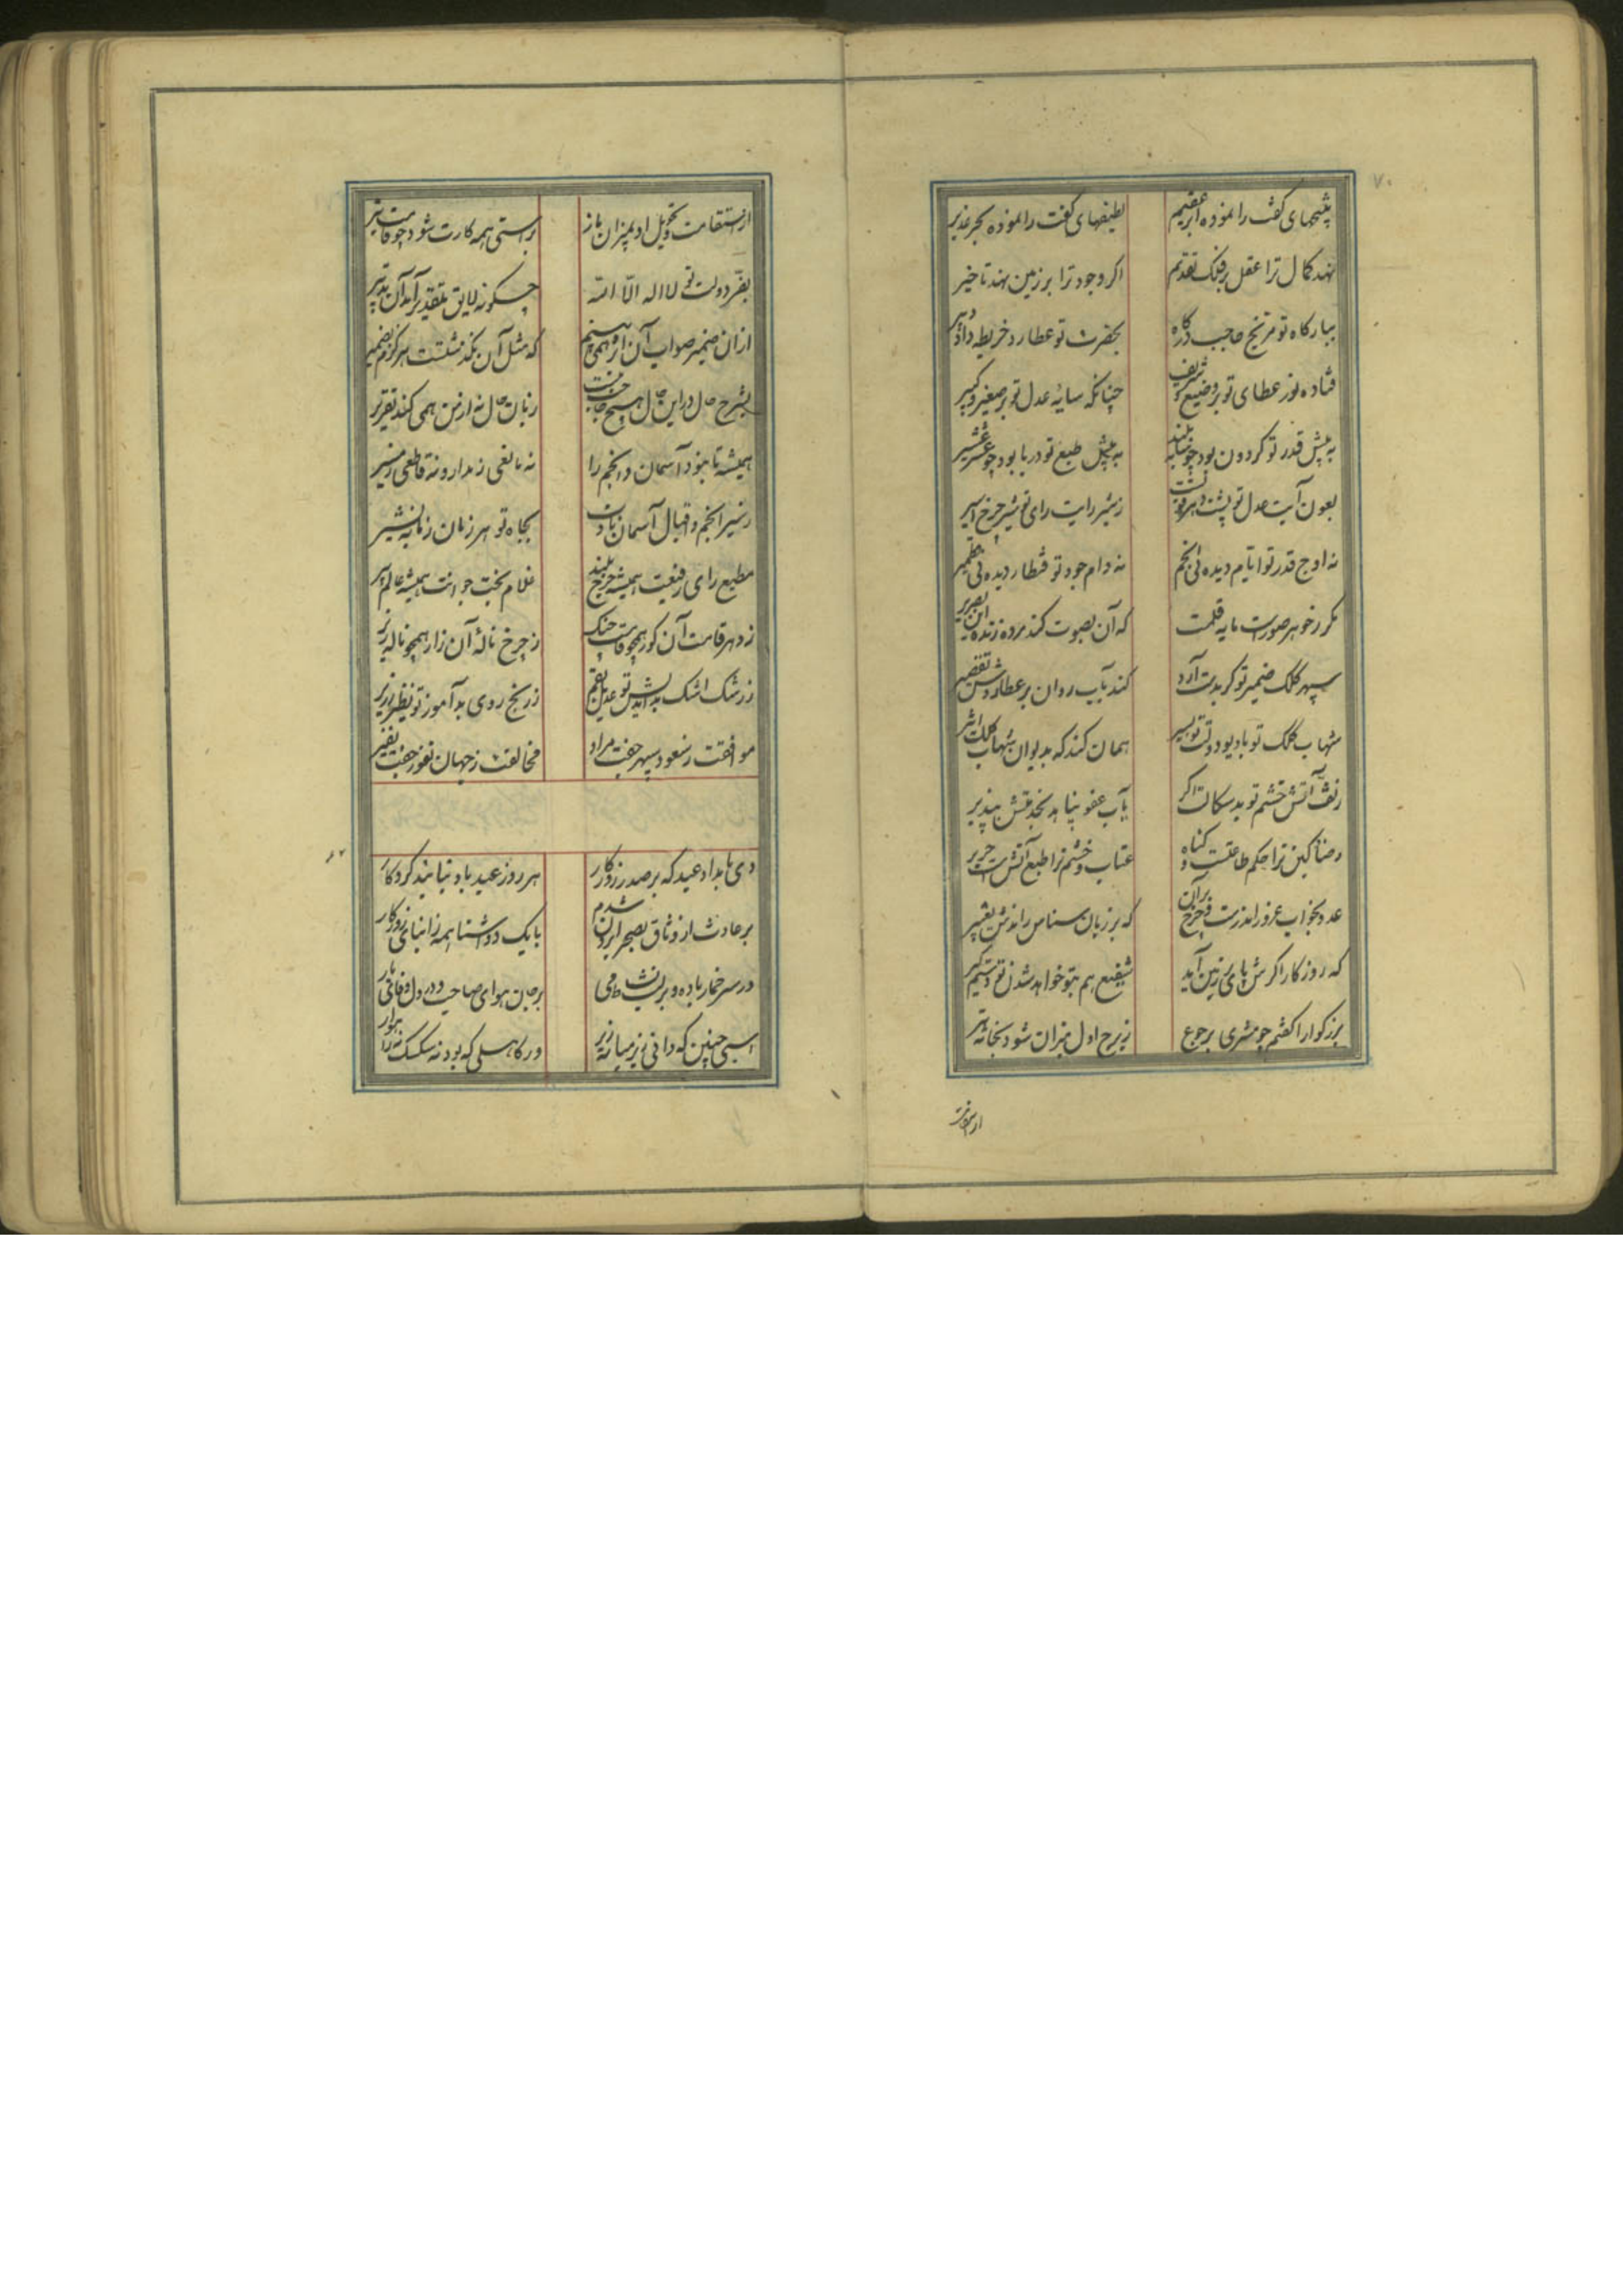 ۷۰
نتیجهای کفت را نموده ابر عقیم
لطیفهای کفت را نموده بحر غدیر
نهد کمال ترا عقل بر فلک تقدیم
اگر وجود ترا بر زمین نهد تاخیر
ببارگاه تو مریخ حاجب درگاه
بحضرت تو عطارد خریطه دار و دبیر
فتاده نور عطای تو بر وضیع و شریف
چنانکه سایه عدل تو بر صغیر و کبیر
به پیش قدر تو گردون بود چو خاک
به پیش طبع تو دریا بود چو عشر عشیر
بعون آیت عدل تو پشه
ز شیر رایت رای تو شیر چرخ اسیر
نه اوج قدر تو ایام دیده نی انجم
نه دام جود تو قنطار دیده نی قطمیر
مگر ز خواهر صورست مایه قلمت
که آن بصوت کند مرده زنده این بصریر
سپهر کلک ضمیر تو گر بدست آرد
کند بآب روان بر عطاردش تفضیر
شهاب کلک تو با دیو دولت تو بسیر
همان کند که بدیوان شهاب گاه اثیر
ز تف آتش خشم تو بدسگالت اگر
بآب عفو پناهد بخدمتش بپذیر
رضا و کین ترا حکم طاعتست و گناه
عتاب و خشم ترا طبع آتش است و حریر
عدو بخواب غرور اندرست و چرخ بر آن
که بر زبان سنانش راندش تعبیر
که روزگار اگرش پای بر زمین آید
شفیع هم بتو خواهد شدن تو دست مگیر
بزرگوارا گفتم چو مشتری برجوع
ز برج اول میزان شود بخانه تیر
از استقامت
از استقامت و تحویل او بمیزان باز
براستی همه کارت شود چو قامت تیر
بفر دولت تو لا اله الا الله
چگونه لایق تقدیر آمد آن تدبیر
از آن ضمیر صواب آن اثر همی بینم
که مثل آن نگذشتست هرگزم بضمیر
بشرح حال در این حال هیچ حاجت نیست
زبان حال نه از من همی کند تقریر
همیشه تا نبود آسمان و انجم را
نه مانعی ز مدار و نه قاطعی ز مسیر
ز سیر انجم و اقبال آسمان بادات
بجاه تو هر زمان ز نو تبشیر
مطیع رای رفیعت همیشه چرخ بلند
غلام بخت جوانت همیشه عالم پیر
ز دهر قامت آن کوز همچو قامت چنگ
ز چرخ ناله آن زار همچو ناله زیر
ز رشک اشک بداندیش تو عدیل بقم
ز رنج روی بدآموز تو نظیر زریر
موافقت ز سعود سپهر جفت مراد
مخالفت ز جهان نفور جفت نفیر
دی بامداد عید که بر صدر روزگار
هر روز عید باد بتایید کردگار
بر عادت از وثاق بصحرا برون شدم
با یک دو آشنا همه از ابنای روزگار
در سر خمار باده و بر لب نشاط می
بر جان هوای صاحب و در دل وفای یار
اسبی چنین که دانی زیر میانه زیر
در کاهلی که بود نه سکسک نه راهوار